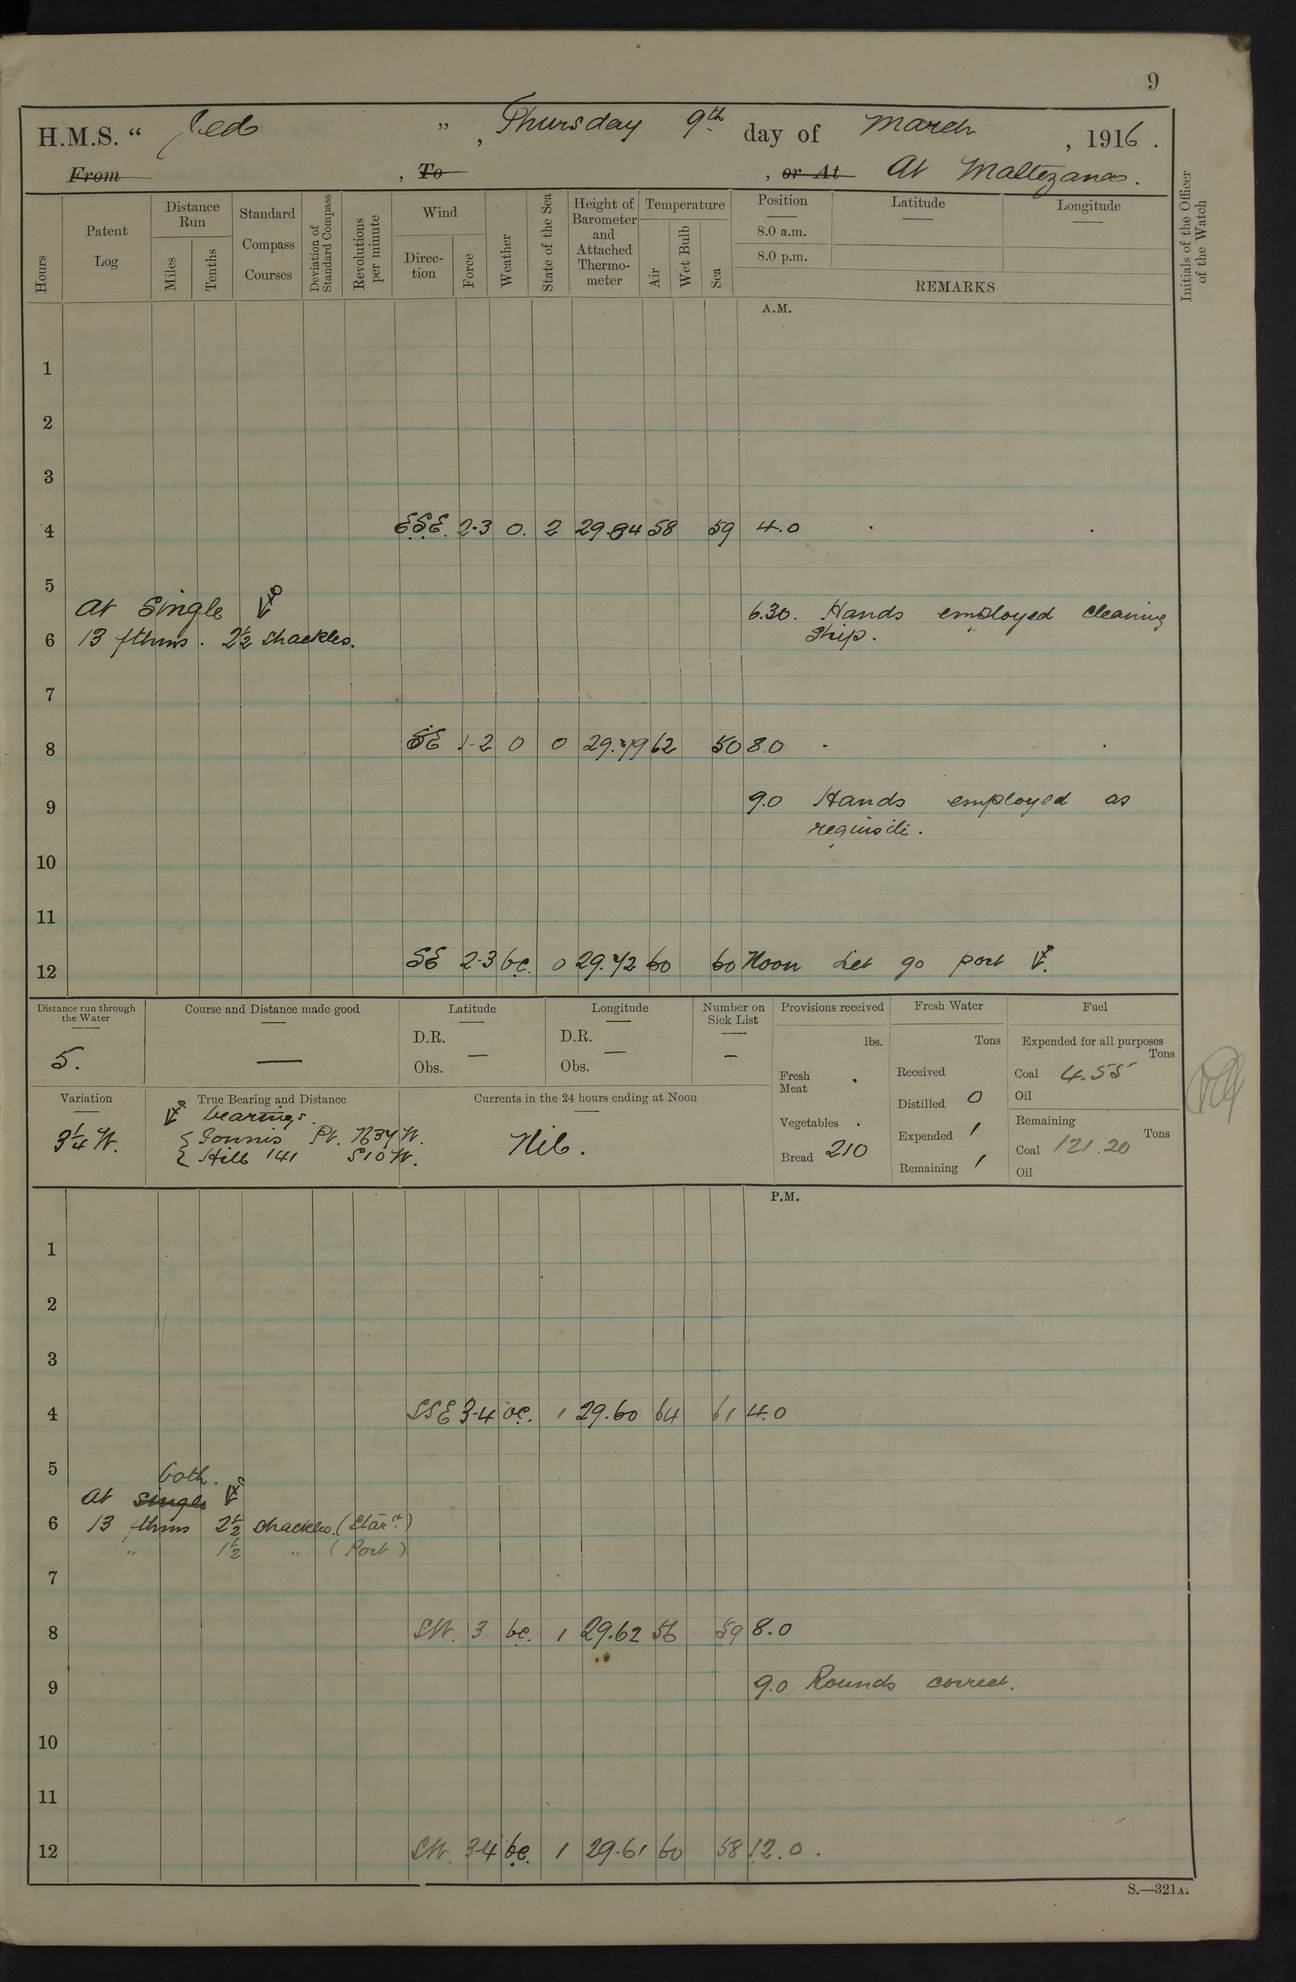 9
H.M.S. " Jed " , Thursday 9th day of March , 1916 .
From , To , or At At Maltezana.
Hours
Patent Log
Distance Run
Miles
Tenths
Standard Compass Courses
Deviation of Standard Compass
Revolutions per minute
Wind
Direction
Force
Weather
State of the Sea
Height of Barometer and Attached Thermometer
Temperature
Air
Wet Bulb
Sea
Position
8.0 a.m.
8.0 p.m.
Latitude
Longitude
REMARKS
Initials of the Officer of the Watch
A.M.
1
2
3
4 ESE. 2-3 o. 2 29.84 58 59 4.0
5
At Single
6.30. Hands employed cleaning
6 13 fthms. 2½ shackles. ship.
7
8 SE 1-2 0 0 29.79 62 50 8.0
9 9.0 Hands employed as
requisite.
10
11
12 SE 2-3 bc. 0 29.72 60 60 Noon Let go port
Distance run through the Water
5.
Course and Distance made good
—
Latitude
D.R.
Obs.
—
Longitude
D.R.
Obs.
—
Number on Sick List
—
Provisions received
lbs.
Fresh Meat
Vegetables
Bread 210
Fresh Water
Tons
Received
Distilled 0
Expended 1
Remaining 1
Fuel
Expended for all purposes
Tons
Coal 4.55
Oil
Remaining
Tons
Coal 121.20
Oil
Variation
3¼ W.
True Bearing and Distance
bearings.
Pt. N34W.
Hill 141 S10W.
Currents in the 24 hours ending at Noon
Nil.
P.M.
1
2
3
4 SSE 3-4 oc. 1 29.60 64 61 4.0
5
both.
At single
6 13 fthms 2½ shackles. (Starbd.)
" 1½ " (Port)
7
8 SW. 3 bc. 1 29.62 56 59 8.0
9 9.0 Rounds correct.
10
11
12 SW. 3-4 bc. 1 29.61 60 58 12.0.
S.—321A.